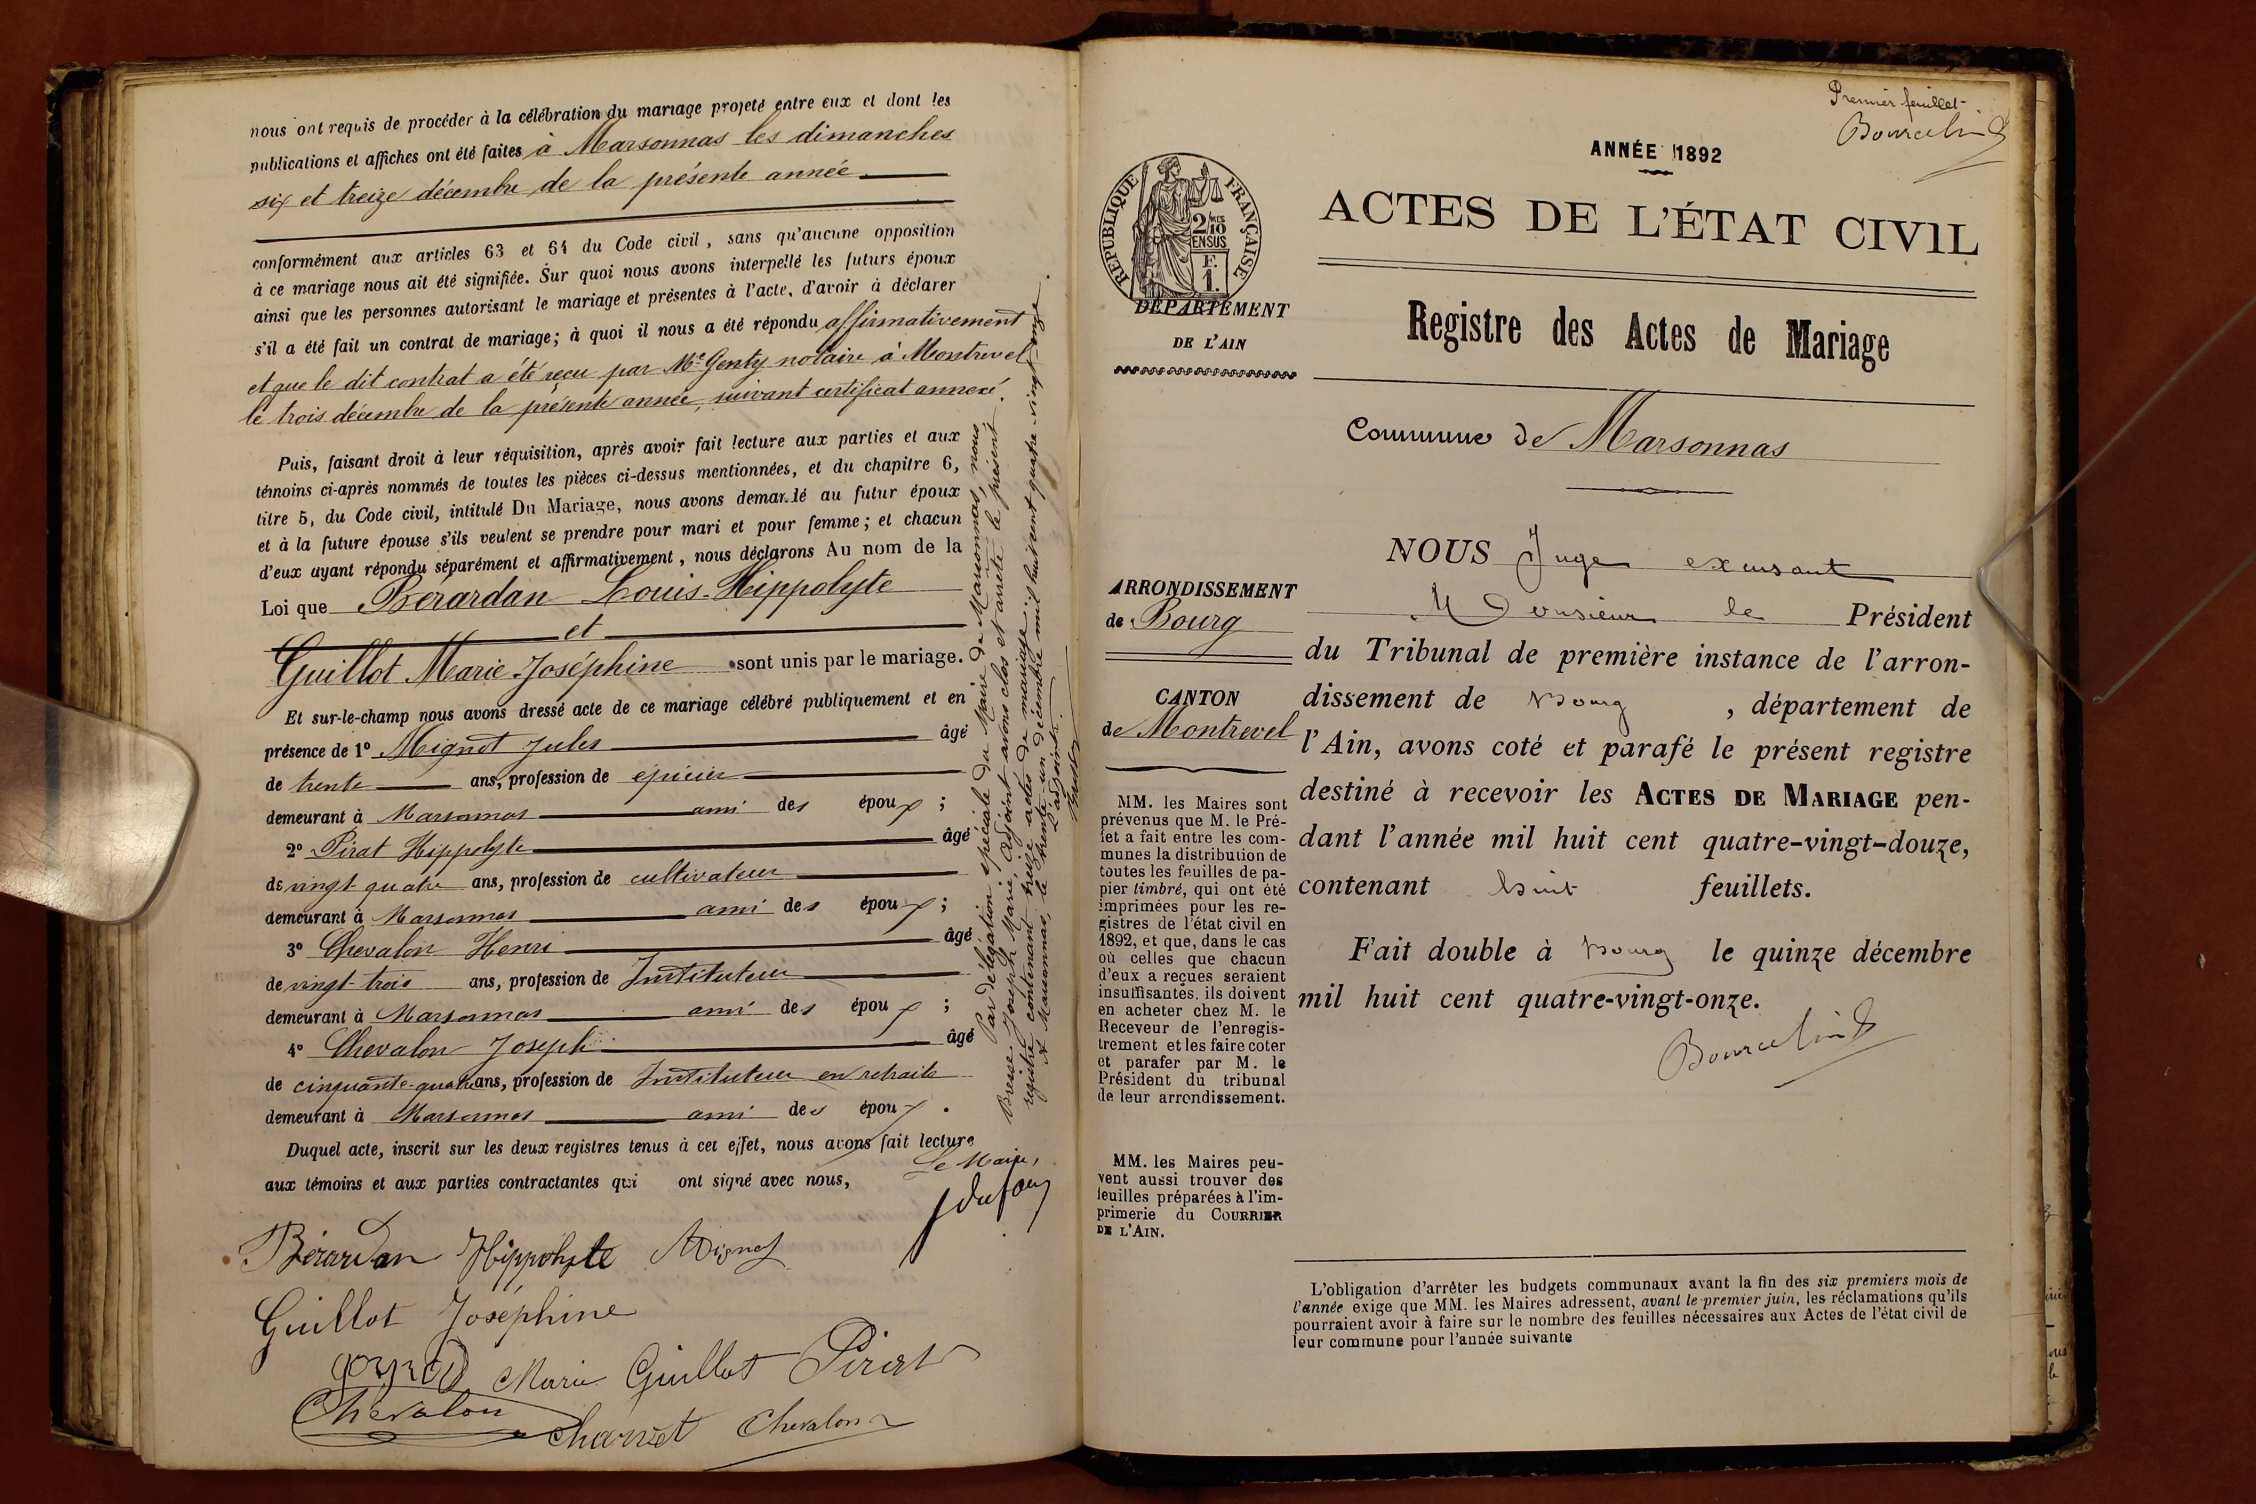 nous ont requis de procéder à la célébration du mariage projeté entre eux et dont les
publications et affiches ont été faites à Marsonnas les dimanches
six et treize décembre de la présente année
conformément aux articles 63 et 64 du Code civil, sans qu'aucune opposition
à ce mariage nous ait été signifiée. Sur quoi nous avons interpellé les futurs époux
ainsi que les personnes autorisant le mariage et présentes à l'acte, d'avoir à déclarer
s'il a été fait un contrat de mariage; à quoi il nous a été répondu affirmativement
et que le dit contrat a été reçu par Me Genty notaire à Montrevel
le trois décembre de la présente année, suivant certificat annexé.
Puis, faisant droit à leur réquisition, après avoir fait lecture aux parties et aux
témoins ci-après nommés de toutes les pièces ci-dessus mentionnées, et du chapitre 6,
titre 5, du Code civil, intitulé Du Mariage, nous avons demandé au futur époux
et à la future épouse s'ils veulent se prendre pour mari et pour femme; et chacun
d'eux ayant répondu séparément et affirmativement, nous déclarons Au nom de la
Loi que Bérardan Louis-Hippolyte
et
Guillot Marie-Joséphine sont unis par le mariage.
Et sur-le-champ nous avons dressé acte de ce mariage célébré publiquement et en
présence de 1° Mignot Jules âgé
de trente ans, profession de épicier
demeurant à Marsonnas ami des époux;
2° Pirat Hippolyte âgé
de vingt quatre ans, profession de cultivateur
demeurant à Marsonnas ami des époux;
3° Chevalon Henri âgé
de vingt-trois ans, profession de Instituteur
demeurant à Marsonnas ami des époux;
4° Chevalon Joseph âgé
de cinquante-quatre ans, profession de Instituteur en retraite
demeurant à Marsonnas ami des époux.
Duquel acte, inscrit sur les deux registres tenus à cet effet, nous avons fait lecture
aux témoins et aux parties contractantes qui ont signé avec nous,
Le Maire,
J Dufour
Bérardan Hippolyte Mignot
Guillot Joséphine
Marie Guillot Pirat
Chevalon
Charvet Chevalon
Par délégation spéciale du Maire de Marsonnas, nous
Bresse Joseph Marie, adjoint avons clos et arrêté le présent
registre contenant treize actes de mariage.
A Marsonnas, le trente-un décembre mil huit cent quatre-vingt-onze.
L'adjoint
Premier feuillet.
Bourcelin
ANNÉE 1892
ACTES DE L'ÉTAT CIVIL
RÉPUBLIQUE FRANÇAISE
2/10 MES
EN SUS
F.
1.
DÉPARTEMENT
DE L'AIN
Registre des Actes de Mariage
Commune de Marsonnas
ARRONDISSEMENT
de Bourg
CANTON
de Montrevel
MM. les Maires sont
prévenus que M. le Pré-
fet a fait entre les com-
munes la distribution de
toutes les feuilles de pa-
pier timbré, qui ont été
imprimées pour les re-
gistres de l'état civil en
1892, et que, dans le cas
où celles que chacun
d'eux a reçues seraient
insuffisantes, ils doivent
en acheter chez M. le
Receveur de l'enregis-
trement et les faire coter
et parafer par M. le
Président du tribunal
de leur arrondissement.
MM. les Maires peu-
vent aussi trouver des
feuilles préparées à l'im-
primerie du COURRIER
DE L'AIN.
NOUS Juge excusant
Monsieur le Président
du Tribunal de première instance de l'arron-
dissement de Bourg, département de
l'Ain, avons coté et parafé le présent registre
destiné à recevoir les ACTES DE MARIAGE pen-
dant l'année mil huit cent quatre-vingt-douze,
contenant huit feuillets.
Fait double à Bourg le quinze décembre
mil huit cent quatre-vingt-onze.
Bourcelin
L'obligation d'arrêter les budgets communaux avant la fin des six premiers mois de
l'année exige que MM. les Maires adressent, avant le premier juin, les réclamations qu'ils
pourraient avoir à faire sur le nombre des feuilles nécessaires aux Actes de l'état civil de
leur commune pour l'année suivante